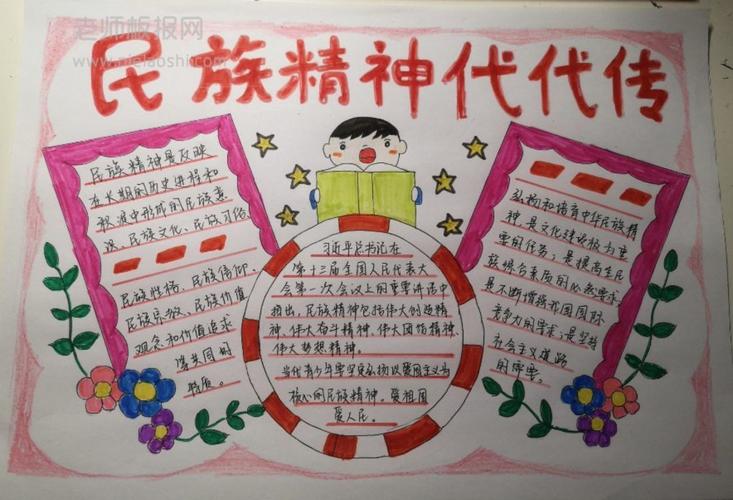 老师板报网
www.cnlaoshi.com
民族精神代代传
民族精神是反映
在长期的历史进程和
积淀中形成的民族意
识、民族文化、民族习俗、
民族性格、民族信仰、
民族宗教、民族价值
观念和价值追求
等共同的
特质。
习近平总书记在
第十三届全国人民代表大
会第一次会议上的重要讲话中
指出，民族精神包括伟大创造精
神、伟大奋斗精神、伟大团结精神、
伟大梦想精神。
当代青少年要坚定弘扬以爱国主义为
核心的民族精神。爱祖国
爱人民。
弘扬和培育中华民族精
神，是文化建设极为重
要的任务；是提高全民
族综合素质的必然要求
是不断增强我国国际
竞争力的要求；是坚持
社会主义道路
的需要。